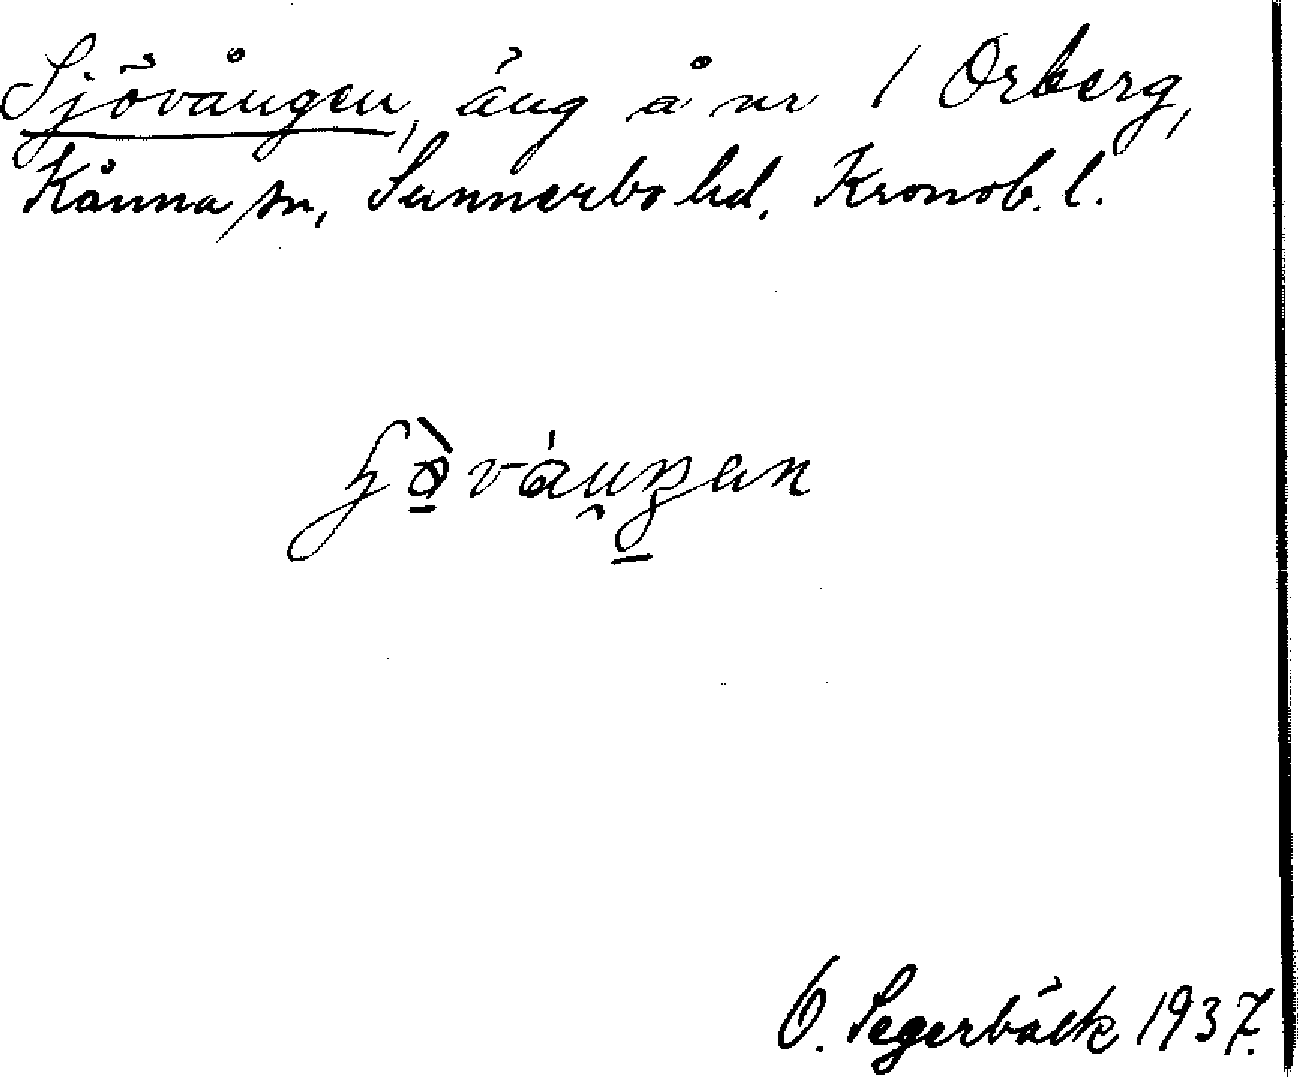 Sjövången, äng å nr 1 Orberg,
Kånna sn, Sunnerbo hd. Kronob. l.
Segerbäck 1937.